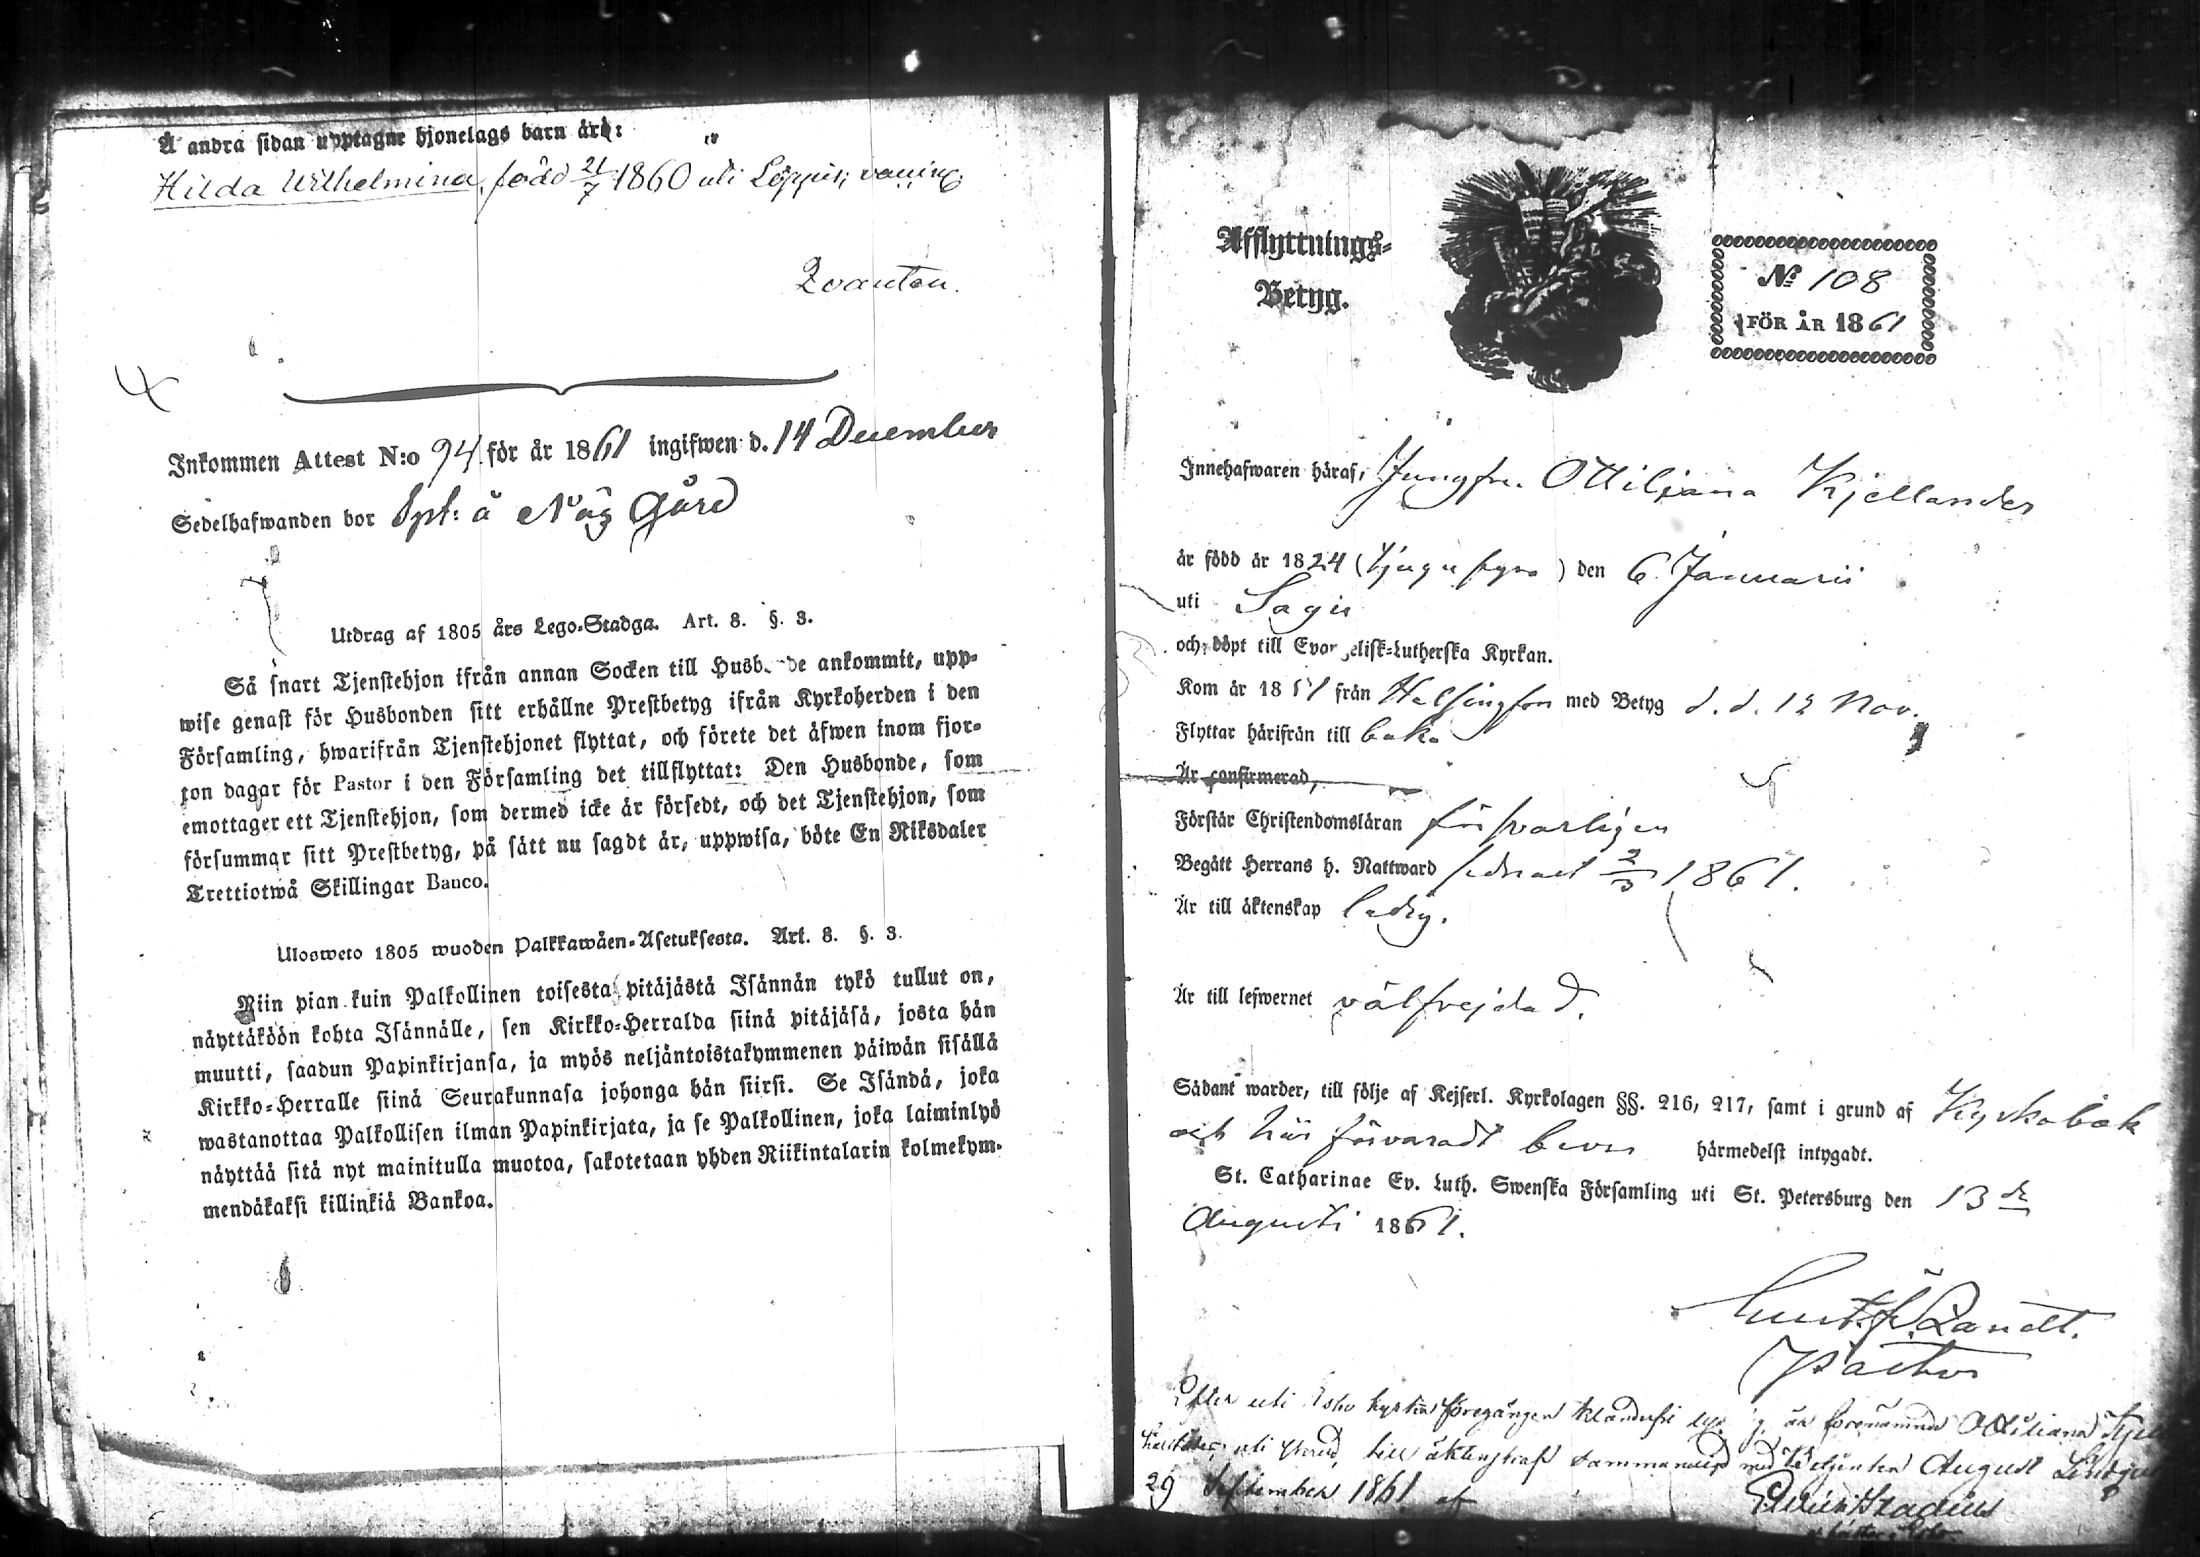 Å andra sidan upptagne hjonelags barn är:
Hilda Wilhelmina, född 21/7 1860 uti Loppis;
Inkommen Attest N:o 94 för år 1861 ingifwen d. 14 December
Sedelhafwanden bor på Gård
Utdrag af 1805 års Lego-Stadga. Art. 8. §. 3.
Så snart Tjenstehjon ifrån annan Socken till Husb de ankommit, upp-
wise genast för Husbonden sitt erhållne Prestbetyg ifrån Kyrkoherden i den
Församling, hwarifrån Tjenstehjonet flyttat, och förete det äfwen inom fjor-
ton dagar för Pastor i den Församling det tillflyttat: Den Husbonde, som
emottager ett Tjenstehjon, som dermed icke är försedt, och det Tjenstehjon, som
försummar sitt Prestbetyg, på sätt nu sagdt är, uppwisa, böte En Riksdaler
Trettiotwå Skillingar Banco.
Ulosweto 1805 wuoden Palkkawäen-Asetuksesta. Art. 8. §. 3.
Niin pian kuin Palkollinen toisesta pitäjästä Isännän tykö tullut on,
näyttäköön kohta Isännälle, sen Kirkko-Herralda siinä pitäjäsä, josta hän
muutti, saadun Papinkirjansa, ja myös neljäntoistakymmenen päiwän sisällä
Kirkko-Herralle siinä Seurakunnasa johonga hän siirsi. Se Isändä, joka
wastanottaa Palkollisen ilman Papinkirjata, ja se Palkollinen, joka laiminlyö
näyttää sitä nyt mainitulla muotoa, sakotetaan yhden Riikintalarin kolmekym-
mendäkaksi killinkiä Bankoa.
Afflyttnings-
Betyg.
No 108
FÖR ÅR 1861
Innehafwaren häraf, Jungfru Ottiliana Kjellander
är född år 1824 (tjugufyra) den 6 Januarii
uti Sagu
och döpt till Evangelisk-Lutherska Kyrkan.
Kom år 18 1 från Helsingfors med Betyg d. d. 12 Nov.
Flyttar härifrån till baka
Är confirmerad,
Förstår Christendomsläran försvarligen
Begått Herrans h. Nattward sednast 1861.
Är till äktenskap ledig.
Är till lefwernet välfrejdad.
Sådant warder, till följe af Kejserl. Kyrkolagen §§. 216, 217, samt i grund af Kyrkobok
och här förvaradt bevis härmedelst intygadt.
St. Catharinae Ev. Luth. Swenska Församling uti St. Petersburg den 13de
Augusti 1861.
Pastor
Efter uti Esbo kyrka föregången är förenämnda Ottiliana
uti till äktenskap med August
29 September 1861 af